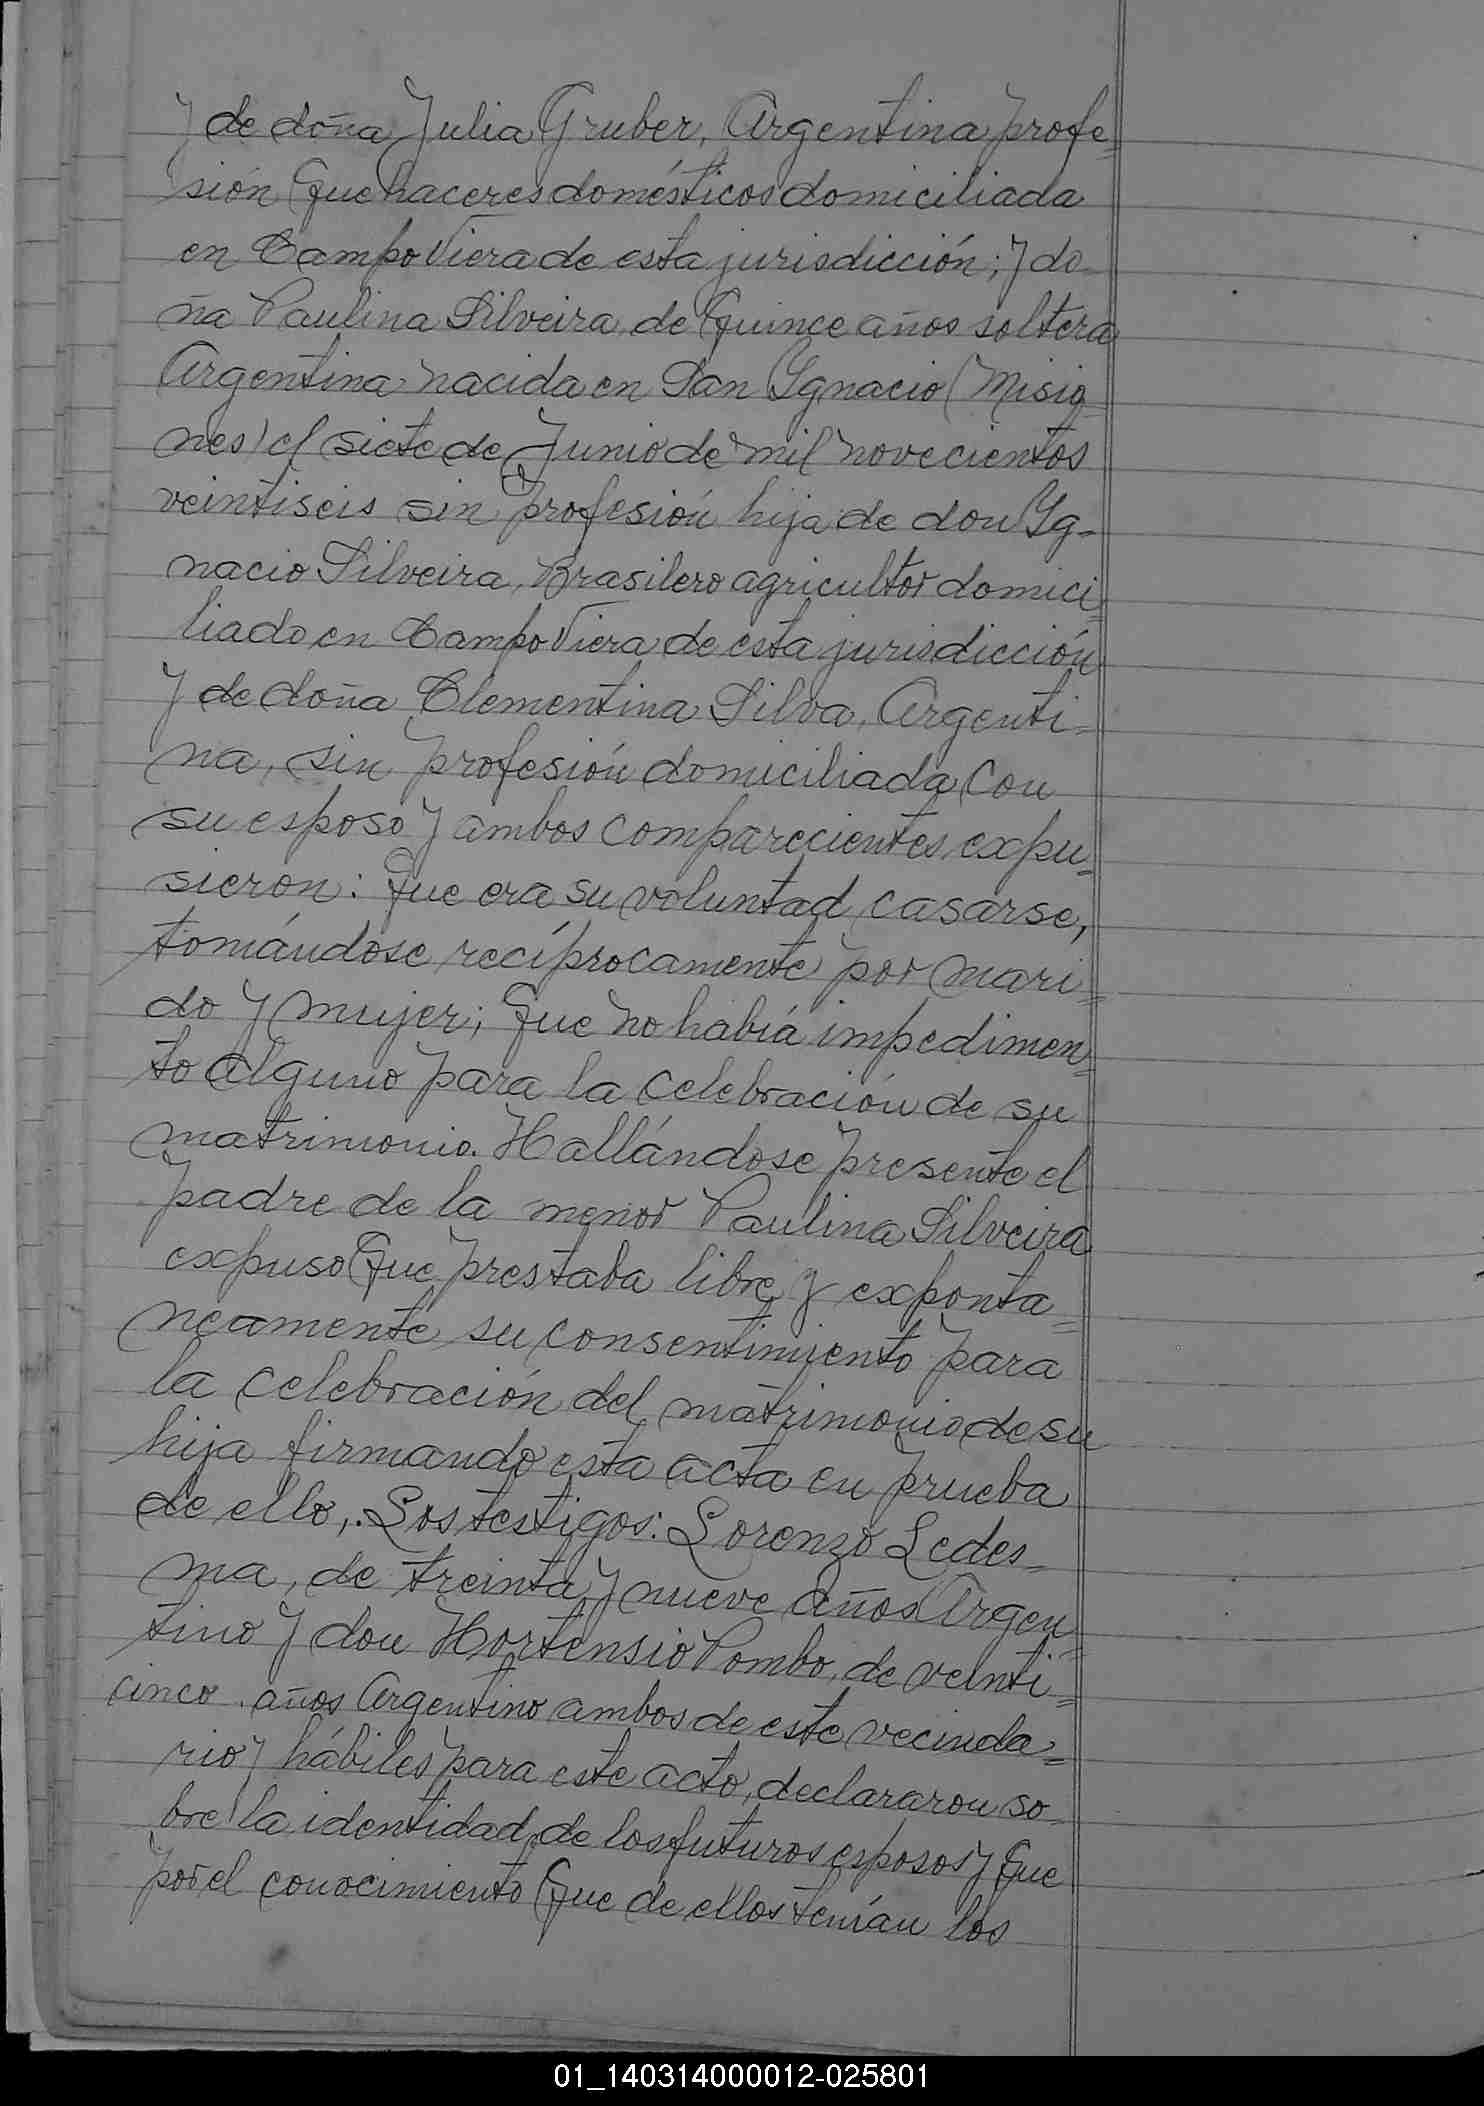 y de doña Julia Gruber, Argentina profe=
sión Quehaceres domésticos domiciliada
en Campo Viera de esta jurisdicción; y do-
ña Paulina Silveira, de Quince años soltera
Argentina nacida en San Ygnacio (Misio
nes) el siete de Junio de mil novecientos
veintiseis sin profesión hija de don Yg-
nacio Silveira, Brasilero agricultor domici=
liado en Campo Viera de esta jurisdicción
y de doña Clementina Silva, Argenti-
na, sin profesión domiciliada con
su esposo y ambos comparecientes expu=
sieron: Que era su voluntad casarse,
tomándose recíprocamente por mari=
do y mujer; Que no había impedimen=
to alguno para la celebración de su
matrimonio. Hallándose presente el
padre de la menor Paulina Silveira
expuso Que prestaba libre y exponta=
neamente su consentimiento para
la celebración del matrimonio de su
hija firmando esta acta en prueba
de ello,. Los testigos: Lorenzo Ledes-
ma, de treinta y nueve años Argen=
tino y don Hortensio Pombo, de veinti=
cinco años Argentino ambos de este vecinda=
rio y hábiles para este acto, declararon so-
bre la identidad de los futuros esposos y Que
por el conocimiento Que de ellos tenían los
01_140314000012-025801